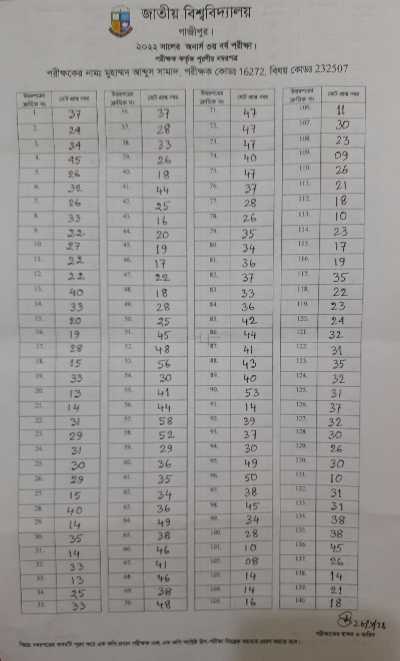 জাতীয় বিশ্ববিদ্যালয়
গাজীপুর।
২০২২ সালের অনার্স ৩য় বর্ষ পরীক্ষা।
পরীক্ষক কর্তৃক পূরণীয় নম্বরপত্র
পরীক্ষকের নামঃ মুহাম্মদ আব্দুস সামাদ, পরীক্ষক কোডঃ 16272, বিষয় কোডঃ 232507
উত্তরপত্রের ক্রমিক নং মোট প্রাপ্ত নম্বর
1. 37
2. 24
3. 34
4. 45
5. 26
6. 32
7. 26
8. 33
9. 22
10. 27
11. 22
12. 22
13. 40
14. 33
15. 20
16. 19
17. 28
18. 15
19. 33
20. 13
21. 14
22. 31
23. 29
24. 31
25. 30
26. 29
27. 15
28. 40
29. 14
30. 35
31. 14
32. 33
33. 13
34. 25
35. 33
উত্তরপত্রের ক্রমিক নং মোট প্রাপ্ত নম্বর
36. 37
37. 28
38. 33
39. 26
40. 18
41. 44
42. 25
43. 16
44. 20
45. 19
46. 17
47. 22
48. 18
49. 28
50. 25
51. 45
52. 48
53. 56
54. 30
55. 41
56. 44
57. 58
58. 52
59. 29
60. 36
61. 35
62. 34
63. 36
64. 49
65. 38
66. 46
67. 41
68. 46
69. 38
70. 48
উত্তরপত্রের ক্রমিক নং মোট প্রাপ্ত নম্বর
71. 47
72. 47
73. 47
74. 40
75. 47
76. 37
77. 28
78. 26
79. 35
80. 34
81. 36
82. 37
83. 33
84. 36
85. 42
86. 44
87. 41
88. 43
89. 40
90. 53
91. 14
92. 39
93. 37
94. 30
95. 49
96. 50
97. 38
98. 45
99. 34
100. 28
101. 10
102. 08
103. 14
104. 14
105. 16
উত্তরপত্রের ক্রমিক নং মোট প্রাপ্ত নম্বর
106. 11
107. 30
108. 23
109. 09
110. 26
111. 21
112. 18
113. 10
114. 23
115. 17
116. 19
117. 35
118. 22
119. 23
120. 24
121. 32
122. 31
123. 35
124. 32
125. 31
126. 37
127. 32
128. 30
129. 26
130. 30
131. 10
132. 31
133. 31
134. 38
135. 38
136. 45
137. 26
138. 14
139. 21
140. 18
পরীক্ষকের স্বাক্ষর ও তারিখ